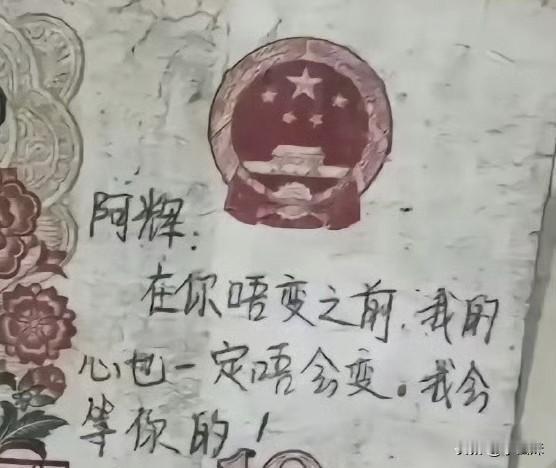 阿辉:
在你唔变之前,我的
心也一定唔会变。我会
等你的!
10